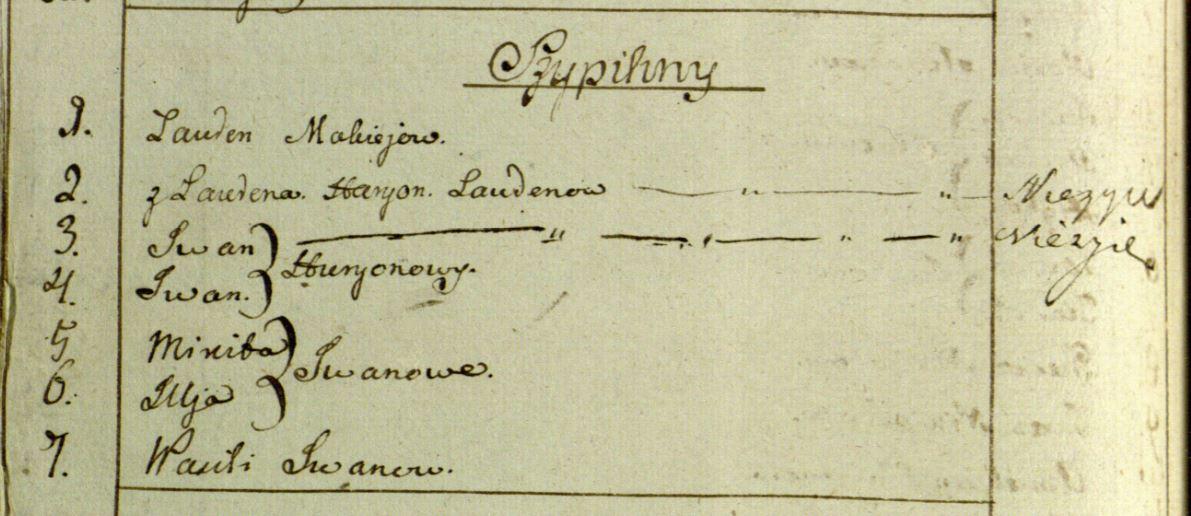 Szypihny
1. Lauden Makiejow.
2. z Laudena. Haryon. Laudenow — " — " — Nieżyie
3. Iwan — " — " — " — " Nieżyie
4. Iwan. } Haryonowy.
5 Mikita
6. Illja } Iwanowe.
7. Wasili Iwanow.